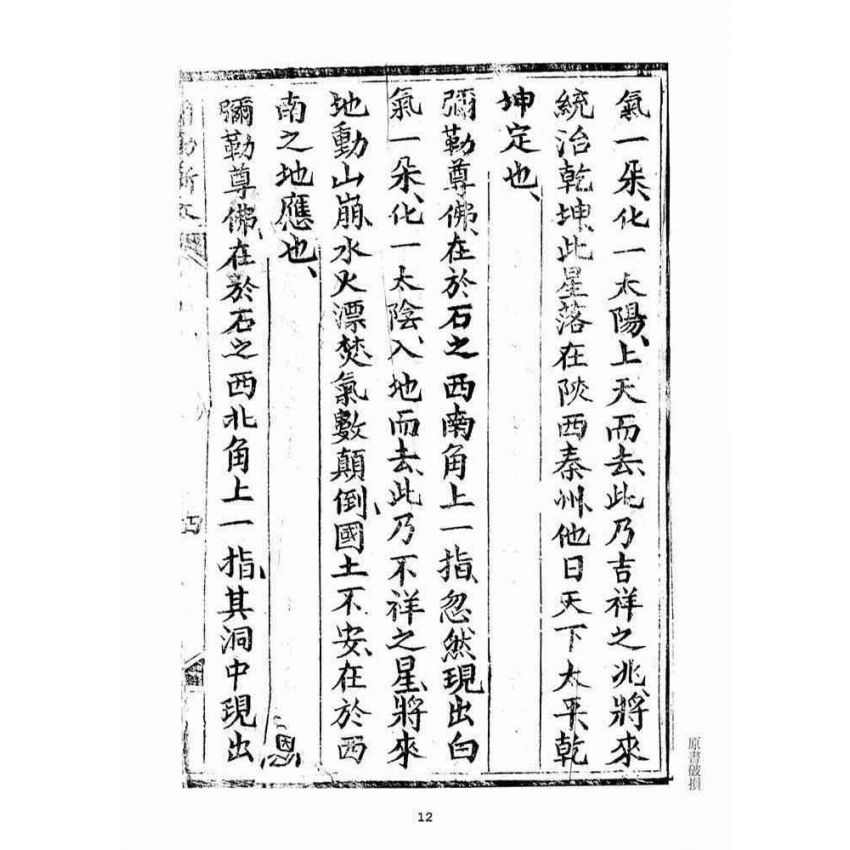 氣一朵、化一太陽、上天而去、此乃吉祥之兆、將來
統治乾坤、此星落在陝西秦州、他日天下太平、乾
坤定也、
彌勒尊佛、在於石之西南角上一指、忽然現出白
氣一朵、化一太陰、入地而去、此乃不祥之星、將來
地動山崩、水火漂焚、氣數顛倒、國土不安、在於西
南之地應也、
恩
彌勒尊佛、在於石之西北角上一指、其洞中現出
四
原書破損
12